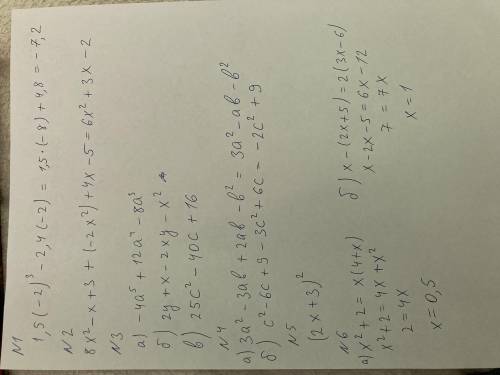 N1
1,5(-2)³ - 2,4(-2) = 1,5·(-8) + 4,8 = -7,2
N2
8x² - x + 3 + (-2x²) + 4x - 5 = 6x² + 3x - 2
N3
а) -4a⁵ + 12a⁴ - 8a³
б) 2y + x - 2xy - x²
в) 25c² - 40c + 16
N4
а) 3a² - 3ab + 2ab - b² = 3a² - ab - b²
б) c² - 6c + 9 - 3c² + 6c = -2c² + 9
N5
(2x + 3)²
N6
а) x² + 2 = x(4 + x)
x² + 2 = 4x + x²
2 = 4x
x = 0,5
б) x - (2x + 5) = 2(3x - 6)
x - 2x - 5 = 6x - 12
7 = 7x
x = 1